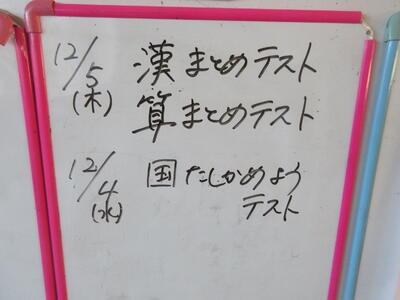 12/5(木) 漢 まとめテスト
算 まとめテスト
12/4(水) 国 たしかめよう
テスト